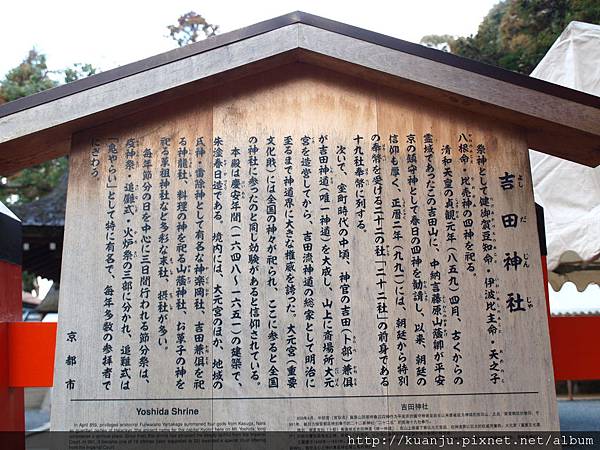 吉田神社
よしだじんじゃ
祭神として健御賀豆知命・伊波比主命・天之子
八根命・比売神の四神を祀る。
清和天皇の貞観元年(八五九)四月、古くからの
霊域であったこの吉田山に、中納言藤原山蔭卿が平安
京の鎮守神として春日の四神を勧請し、以来、朝廷の
信仰も厚く、正暦二年(九九一)には、朝廷から特別
の奉幣を受ける二十二の社(二十二社)の前身である
十九社奉幣に列する。
次いで、室町時代の中頃、神官の吉田(卜部)兼俱
が吉田神道(唯一神道)を大成し、山上に斎場所大元
宮を造営してから、吉田流神道の総家として明治に
至るまで神道界に大きな権威を誇った。大元宮(重要
文化財)には全国の神々が祀られ、ここに参ると全国
の神社に参ったのと同じ効験があると信仰されている。
本殿は慶安年間(一六四八~一六五一)の建築で、
朱塗春日造である。境内には、大元宮のほか、地域の
氏神・雷除神として有名な神楽岡社、吉田兼俱を祀
る神龍社、料理の神を祀る山蔭神社、お菓子の神を
祀る菓祖神社など多彩な末社、摂社が多い。
毎年節分の日を中心に三日間行われる節分祭は、
疫神祭、追儺式、火炉祭の三部に分かれ、追儺式は
「鬼やらい」として特に有名で、毎年多数の参拝者で
にぎわう。
京都市
Yoshida Shrine
In April 859, privileged aristocrat Fujiwarano Yamakage summoned four gods from Kasuga, Nara
吉田神社
http://kuanju.pixnet.net/blog